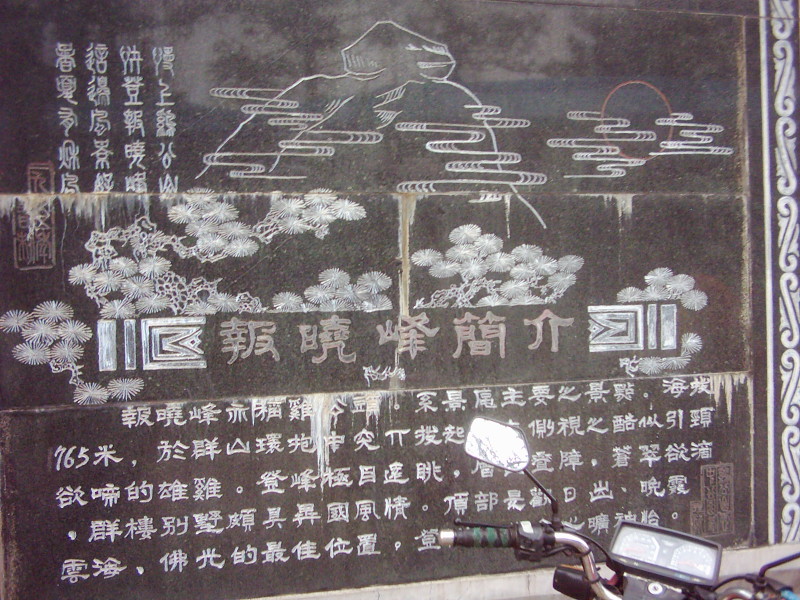 上雞公山
登報曉峰
這邊風景好
春夏秋
報曉峰簡介
報曉峰亦雞頭。系景區主要之景點。海拔
765米，於群山環抱中突兀拔起側視之酷似引頸
欲啼的雄雞。登峰極目遠眺，層疊障，蒼翠欲滴
，群樓別墅頗具異國風情。頂部是觀日出、晚霞
雲海、佛光的最佳位置。登曠神怡。